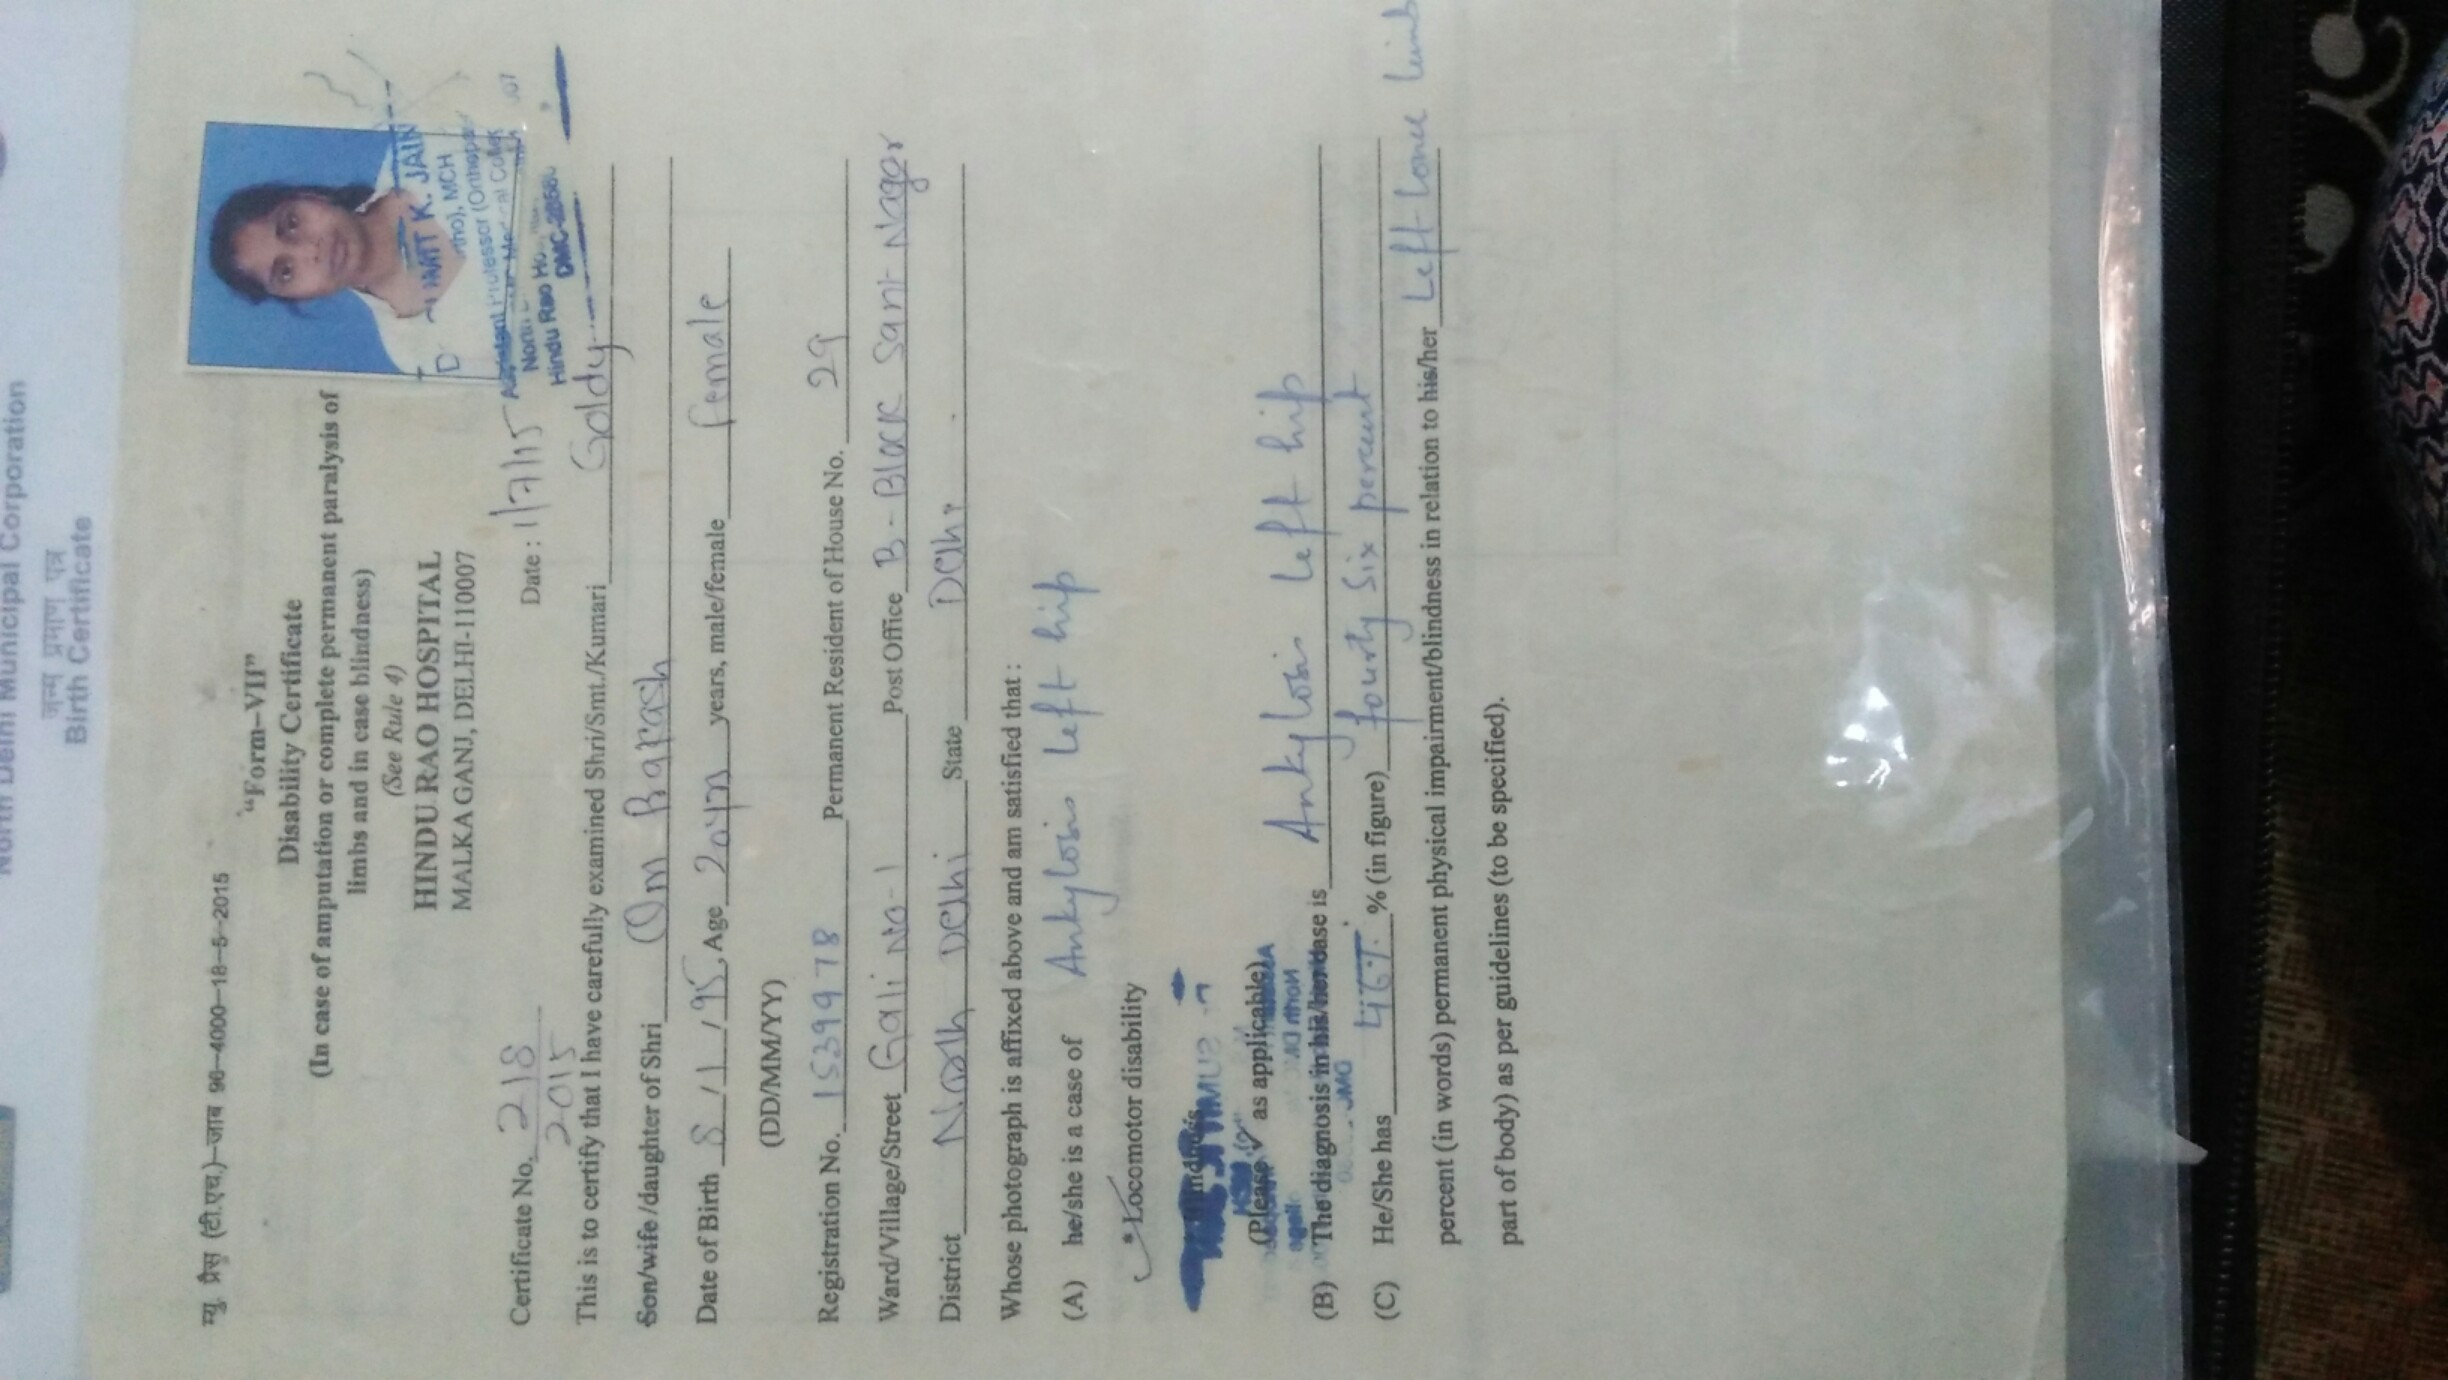 North Delhi Municipal Corporation
जन्म प्रमाण पत्र
Birth Certificate
म्यु. प्रैस (टी.एच.)–जाब 96–4000–18–5–2015
"Form–VII"
Disability Certificate
(In case of amputation or complete permanent paralysis of
limbs and in case blindness)
(See Rule 4)
HINDU RAO HOSPITAL
MALKA GANJ, DELHI-110007
AMIT K. JAIN
MCH
Assistant Professor
Hindu Rao
Certificate No. 218
2015
Date : 1/7/15
This is to certify that I have carefully examined Shri/Smt./Kumari Goldy
Son/wife/daughter of Shri Om Parkash
Date of Birth 8/11/95, Age 20 yrs years, male/female female
(DD/MM/YY)
Registration No. 1539978 Permanent Resident of House No. 29
Ward/Village/Street Gali No-1 Post Office B-Block Sant Nagar
District North Delhi State Delhi
Whose photograph is affixed above and am satisfied that :
(A) he/she is a case of Ankylosis left hip
* Locomotor disability
(Please ✓ as applicable)
(B) The diagnosis in his/her case is Ankylosis left hip
(C) He/She has 46%. % (in figure) fourty six percent
percent (in words) permanent physical impairment/blindness in relation to his/her left lower limb
part of body) as per guidelines (to be specified).